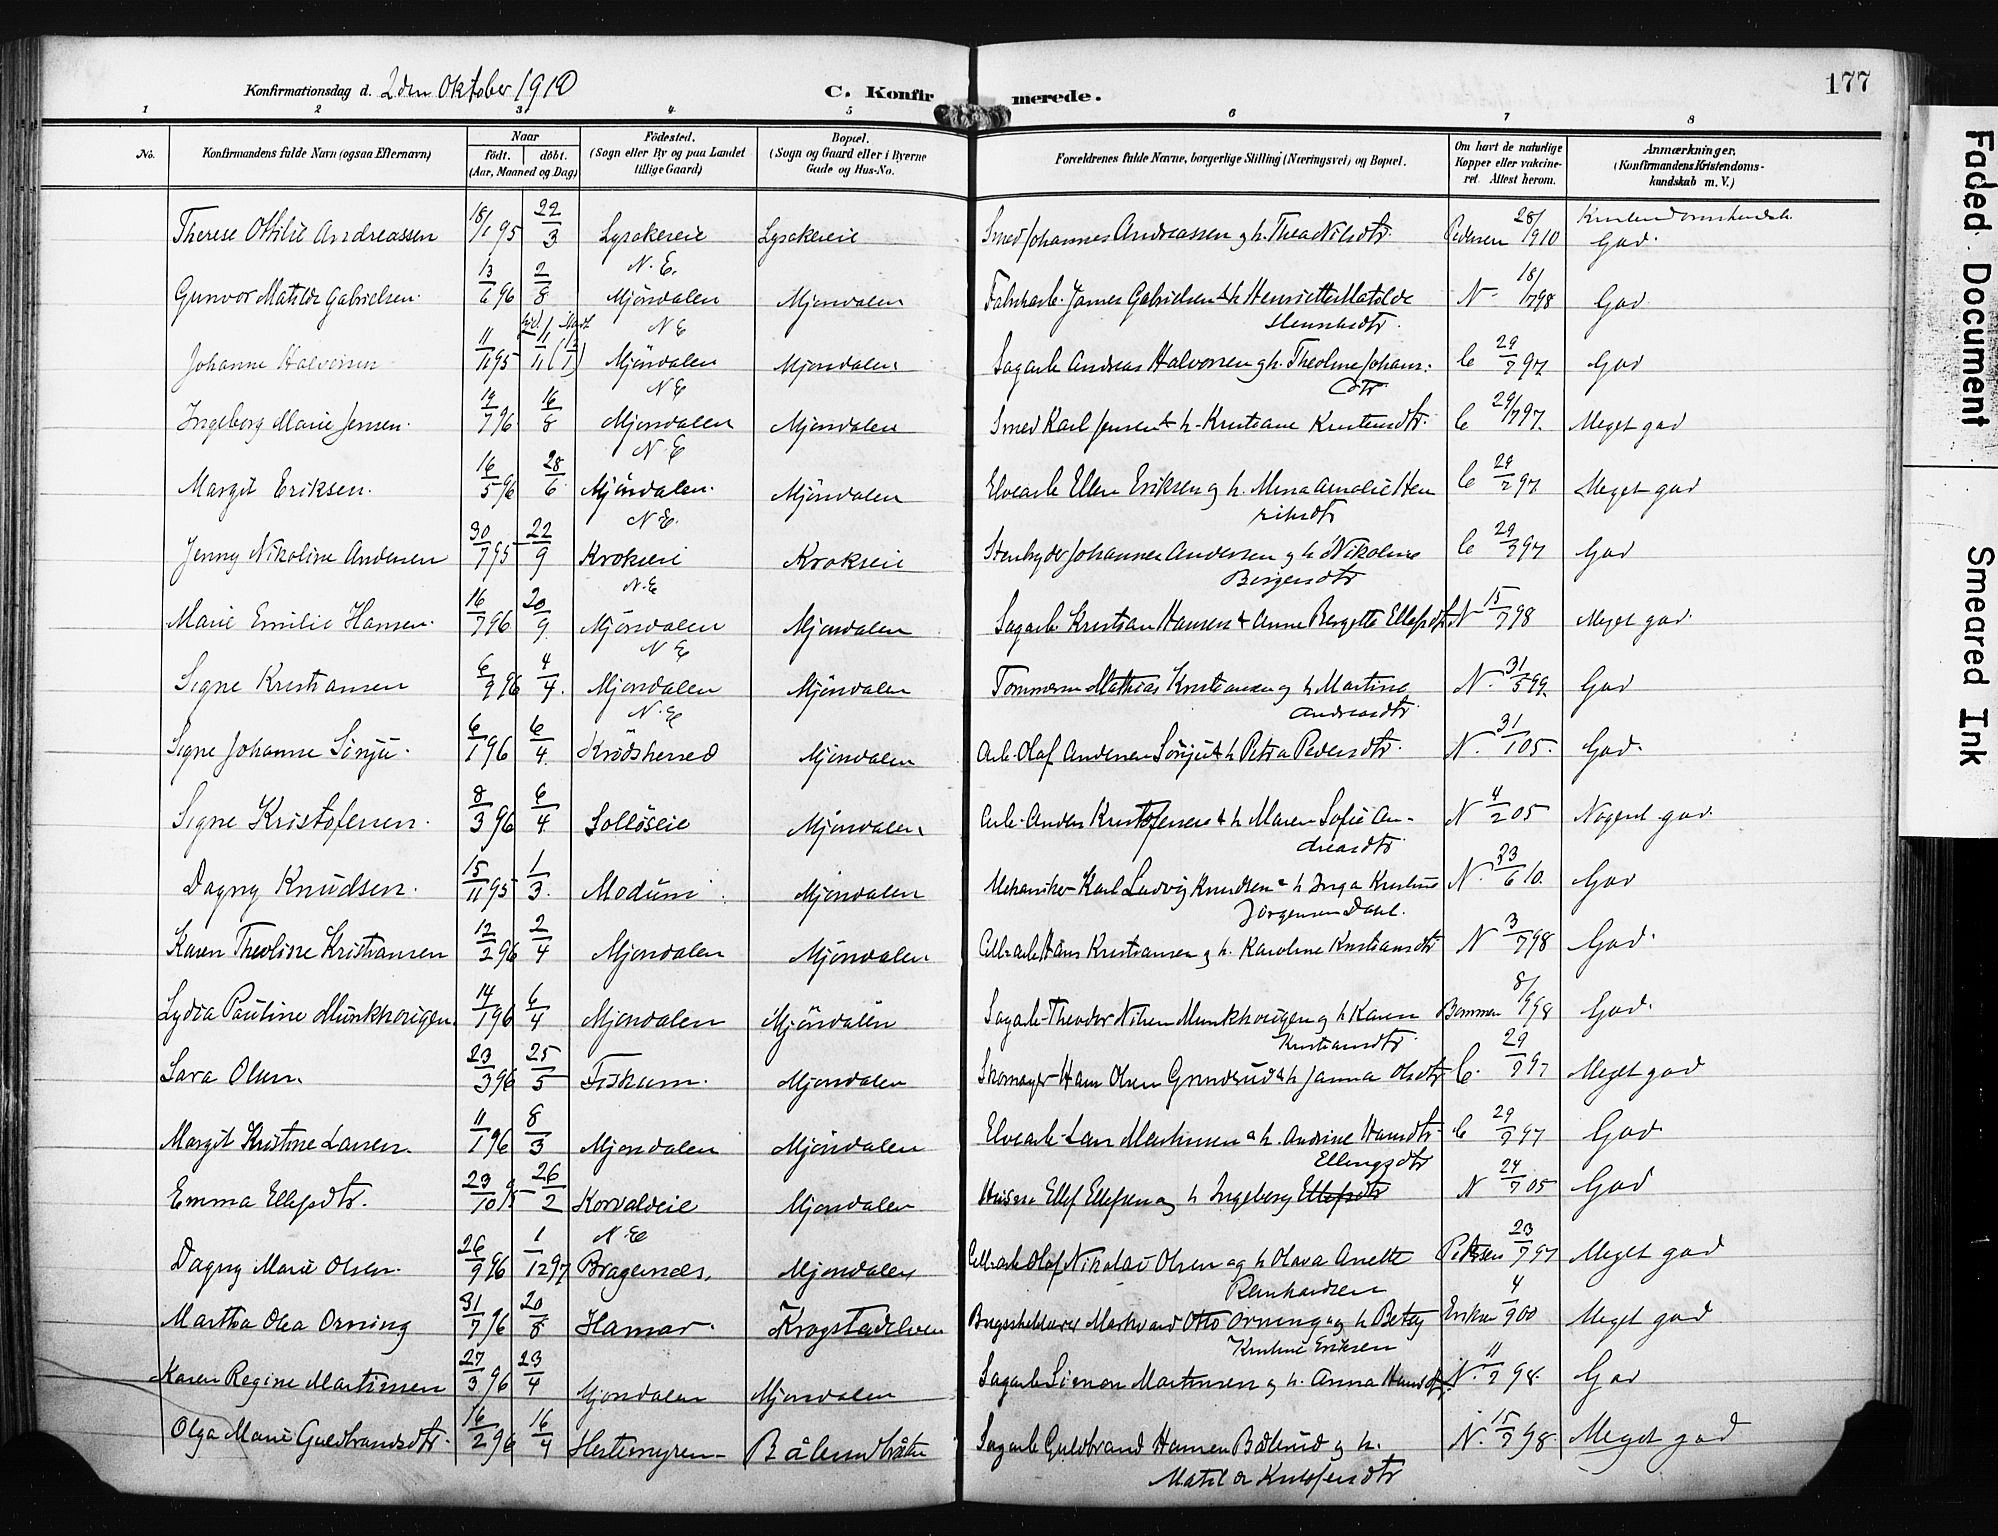 Konfirmationsdag d. 2den Oktober 1910 C. Konfirmerede. 177
1 2 3 4 5 6 7 8
No. Konfirmandens fulde Navn (ogsaa Efternavn) Naar födt. döbt. (Aar, Maaned og Dag) Födested. (Sogn eller By og paa Landet tillige Gaard) Bopæl. (Sogn og Gaard eller i Byerne Gade og Hus-No. Forældrenes fulde Navne, borgerlige Stilling (Næringsvei) og Bopæl. Om havt de naturlige Kopper eller vaccineret. Attest herom. Anmærkninger. (Konfirmandens Kristendomskundskab m. V.)
Therese Ottilie Andreassen 18/1 95 22/3 Lysakereie Lysakereie Smed Johannes Andreassen og h. Thea Nilsdtr. Pedersen 28/1 1910 Kristendomskundsk. God.
N. E.
Gunvor Matilde Gabrielsen. 13/6 96 2/8 Mjöndalen Mjöndalen Fabrikarb. James Gabrielsen & h Henriette Matilde N. 18/7 98 God
N E
Johanne Halvorsen 11/11 95 Mjöndalen Mjöndalen Sagarb Andreas Halvorsen og h. Theoline Johans: C 29/7 97 God
N E Dtr
Ingeborg Marie Jensen. 7 96 16/8 Mjöndalen Mjöndalen Smed Karl Jensen & h. Kristiane Kristensdtr. C 29/7 97. Meget god
N. E
Margit Eriksen. 16/5 96 28/6 Mjöndalen. Mjöndalen Elvearb Ellen Eriksen og h. Mina Amalie Hen C 29/7 97 Meget god
N E. riksdtr
Jenny Nikoline Andersen 30/7 95 22/9 Krokseie Krokseie Stenhyder Johannes Andersen og h Nikoline C 29/7 97 God
N. E Börgersdtr
Marie Emilie Hansen. 16/7 96 20/9 Mjöndalen Mjöndalen Sagarb Kristian Hansen & Anne Bergette Ellefsdtr N 15/7 98 Meget god.
N E
Signe Kristiansen 6/9 96 4/4. Mjöndalen Mjöndalen Tömmerm Mathias Kristiansen og h Martine N. 31/5 99. God
N. E Andreasdtr
Signe Johanne Sönju. 6/1 96 6/4. Krödsherred Mjöndalen Arb. Olaf Andersen Sönju & h Petra Pedersdtr. N. 31/1 05. God.
Signe Kristofersen. 8/3 96 6/4. Solløseie Mjöndalen. Arb. Anders Kristofersen & h Maren Sofie An- N 4/2 05 Nogenl god.
dreasdtr
Dagny Knudsen. 15/11 95 1/3. Modum. Mjöndalen Mekaniker Karl Ludvig Knudsen & h Inga Kristine N. 23/6 10. God
Jörgensen Dahl.
Karen Theoline Kristiansen 12/2 96 2/4 Mjöndalen Mjöndalen. Cell-arb Hans Kristiansen og h. Karoline Kristiansdtr N 3/7 98 God.
Lydia Pauline Munkhougen. 14/1 96 6/4 Mjöndalen Mjöndalen Sagarb. Theodor Nilsen Munkhougen og h Karen Bommen 8/9 98 God.
Kristiansdtr
Sara Olsen. 23/3 96 25/5 Fiskum. Mjöndalen Skomager Hans Olsen Grinderud & h Janna Olsdtr C. 29/7 97 Meget god
Margit Kristine Larsen. 11/1 96 8/3 Mjöndalen Mjöndalen Elvearb. Lars Martinsen & h. Andrine Hansdtr. C 29/7 97 God
Ellingsdtr
Emma Ellefsdtr. 23/10 95 26/2 Korvaldeie Mjöndalen Husm Ellef Ellefsen og h Ingeborg Ellefsdtr N 24/7 05 God
N. E
Dagny Marie Olsen. 26/9 96 1/12 97 Bragernes. Mjöndalen Cell-arb Olaf Nikolai Olsen og h Olava Anette Pettersen 23/7 97 Meget god
Reinhardsen
Martha Olea Orning 31/7 96 20/8 Hamar. Krogstadelven Markvard Otto Orning og h Betzy Eriksen 4/9 00 Meget god
Kristine Eriksen
Karen Regine Martinsen 27/3 96 23/4 Mjöndalen Mjöndalen Sagarb Simon Martinsen og h. Anna Hansdtr. N. 11/7 98. God
Olga Marie Guldbrandsdtr. 16/2 96 16/4 Hestemyren Bålerudbråten Sagarb Guldbrand Hansen Bålerud og h. N. 15/7 98. Meget god
Matilde Kristofersdtr
Faded Document
Smeared Ink